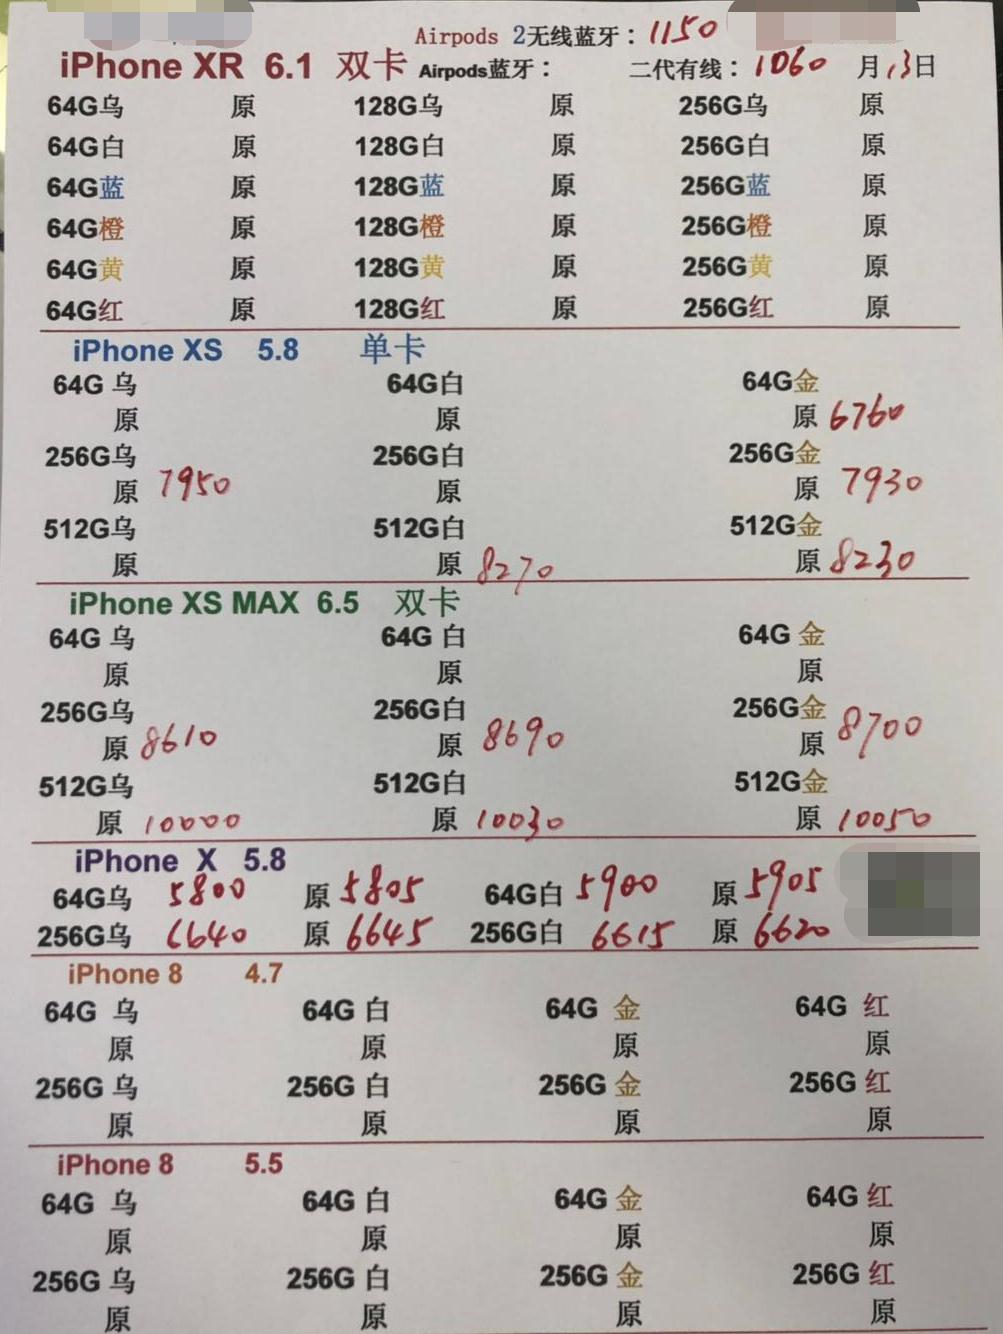 Airpods 2无线蓝牙：1150
iPhone XR 6.1 双卡 Airpods蓝牙： 二代有线：1060 月13日
64G乌 原 128G乌 原 256G乌 原
64G白 原 128G白 原 256G白 原
64G蓝 原 128G蓝 原 256G蓝 原
64G橙 原 128G橙 原 256G橙 原
64G黄 原 128G黄 原 256G黄 原
64G红 原 128G红 原 256G红 原
iPhone XS 5.8 单卡
64G 乌 64G白 64G金
原 原 原 6760
256G乌 256G白 256G金
原 7950 原 原 7930
512G乌 512G白 512G金
原 原 8270 原 8230
iPhone XS MAX 6.5 双卡
64G 乌 64G 白 64G 金
原 原 原
256G乌 256G白 256G金
原 8610 原 8690 原 8700
512G乌 512G白 512G金
原 10000 原 10030 原 10050
iPhone X 5.8
64G乌 5800 原 5805 64G白 5900 原 5905
256G乌 6640 原 6645 256G白 6615 原 6620
iPhone 8 4.7
64G 乌 64G 白 64G 金 64G 红
原 原 原 原
256G 乌 256G 白 256G 金 256G 红
原 原 原 原
iPhone 8 5.5
64G 乌 64G 白 64G 金 64G 红
原 原 原 原
256G 乌 256G 白 256G 金 256G 红
原 原 原 原